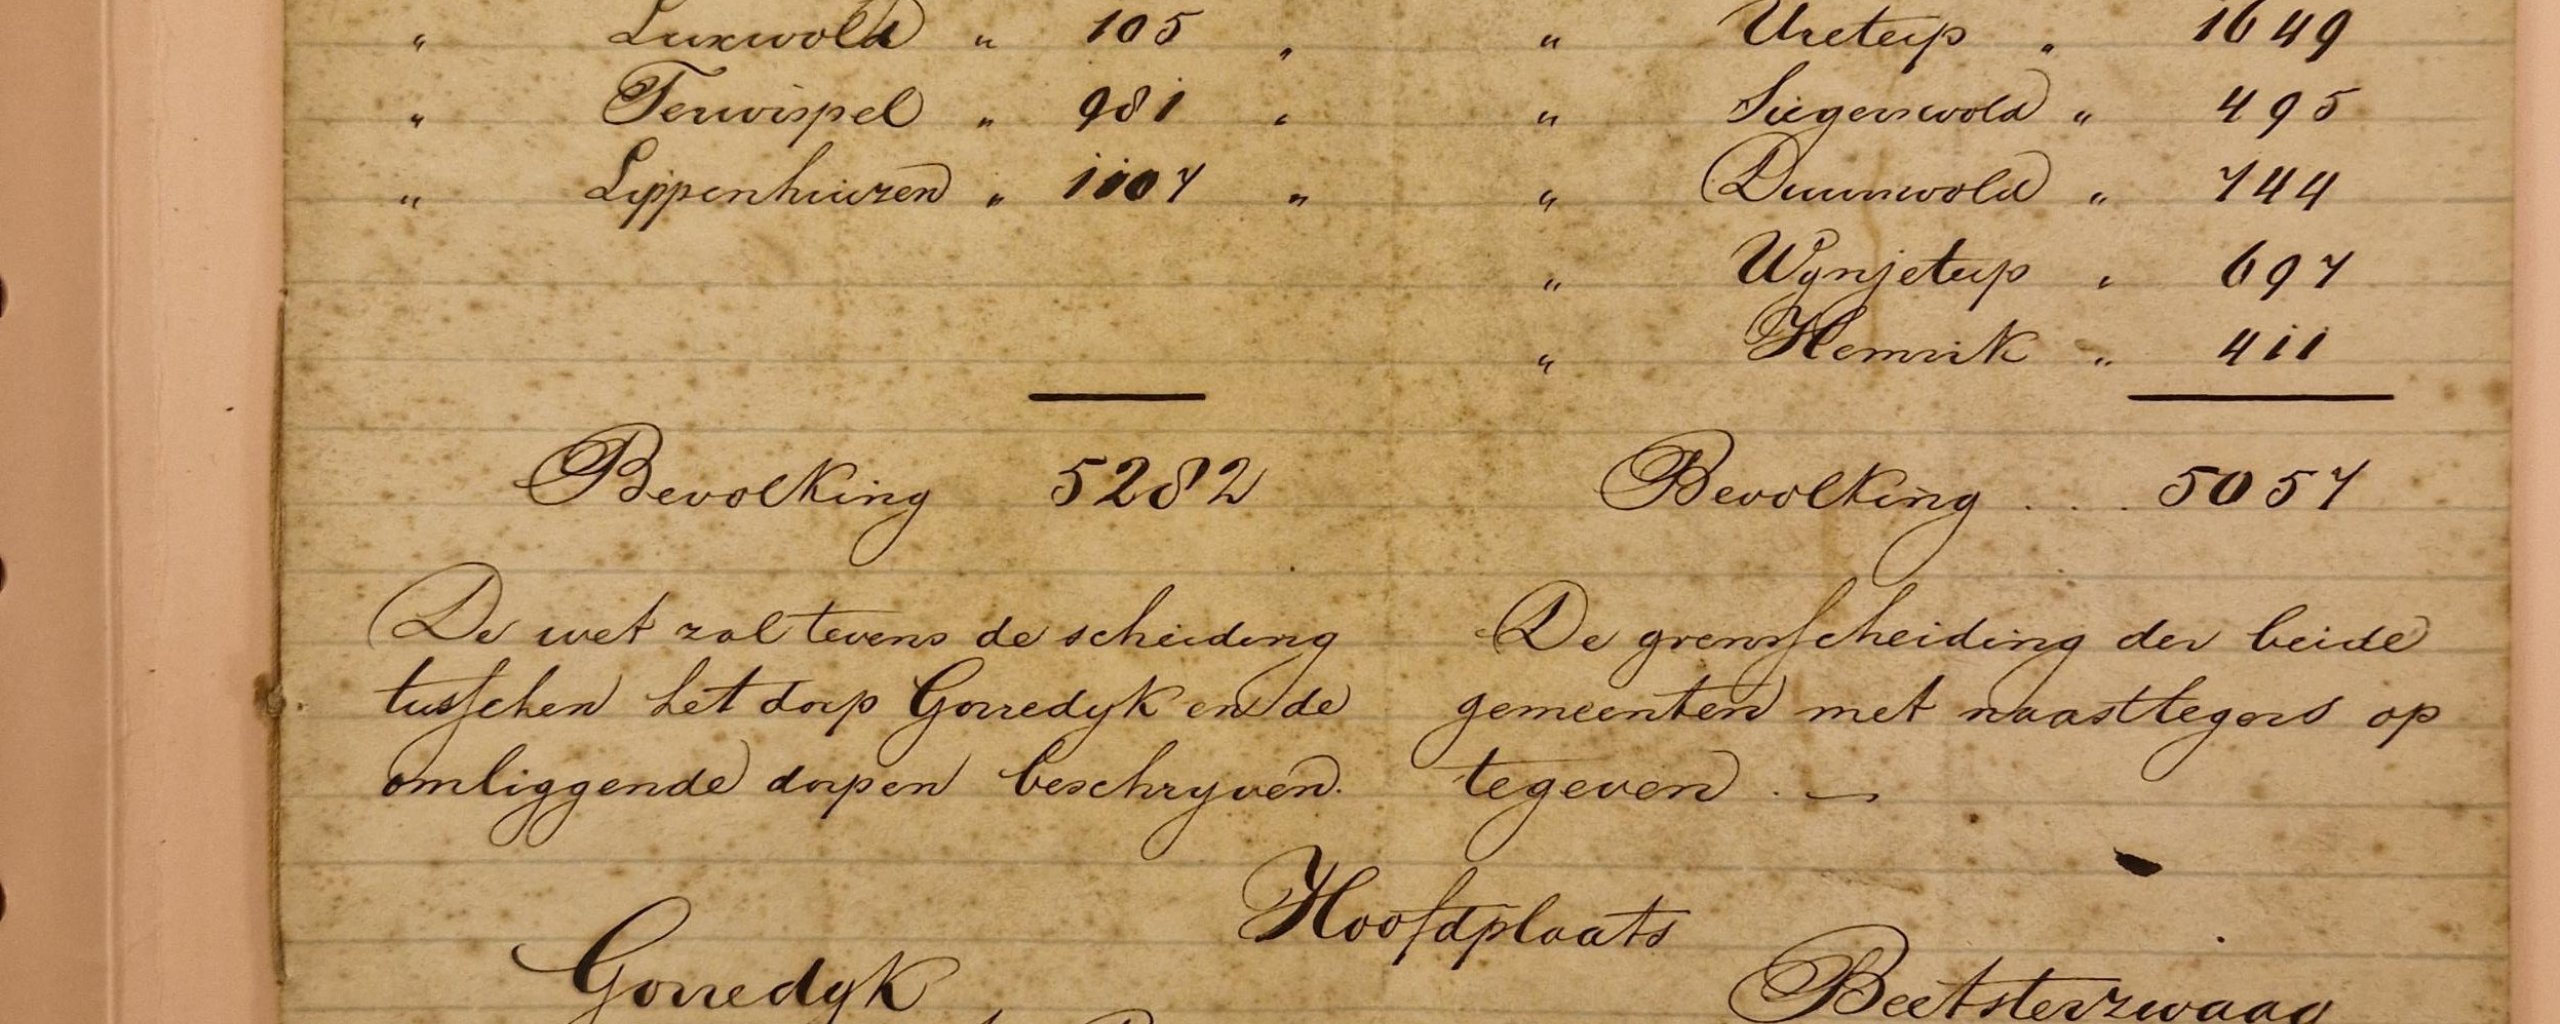 " Luxwold " 105 "
" Terwispel " 981 "
" Lippenhuizen " 1107 "
Bevolking 5282
De wet zal tevens de scheiding
tusschen het dorp Gorredyk en de
omliggende dorpen beschryven.
" Ureterp " 1649
" Siegerswold " 495
" Duurswold " 744
" Wynjeterp " 697
" Hemrik " 411
Bevolking . . . . 5057
De grensscheiding der beide
gemeenten met naastlegers op
tegeven. —
Hoofdplaats
Gorredyk
Beetsterzwaag